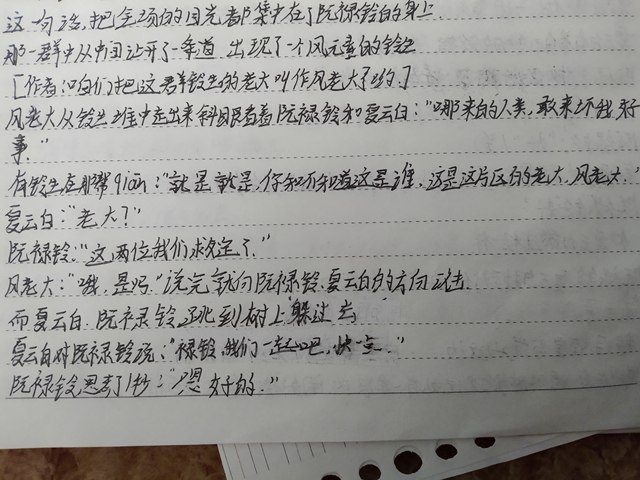 这句话,把全场的目光都集中在了阮禄铃的身上.
那一群中从中间让开了一条道 出现了一个风元素的铃
[作者:咱们把这群铃生的老大叫作风老大了哟.]
风老大从铃生堆中走出来斜眼看着阮禄铃和夏云白:"哪来的人类,敢来坏我好
事."
有铃生在那帮:"就是就是,你知不知道这是谁,这是这片区的老大,风老大."
夏云白:"老大?"
阮禄铃:"这两位我们求定了."
风老大:"哦,是吗."说完就向阮禄铃.夏云白的方向攻击
而夏云白.阮禄铃跳到树上躲过去
夏云白对阮禄铃说:"禄铃,我们一起吧,快一点."
阮禄铃思考了1秒:"嗯 好的."